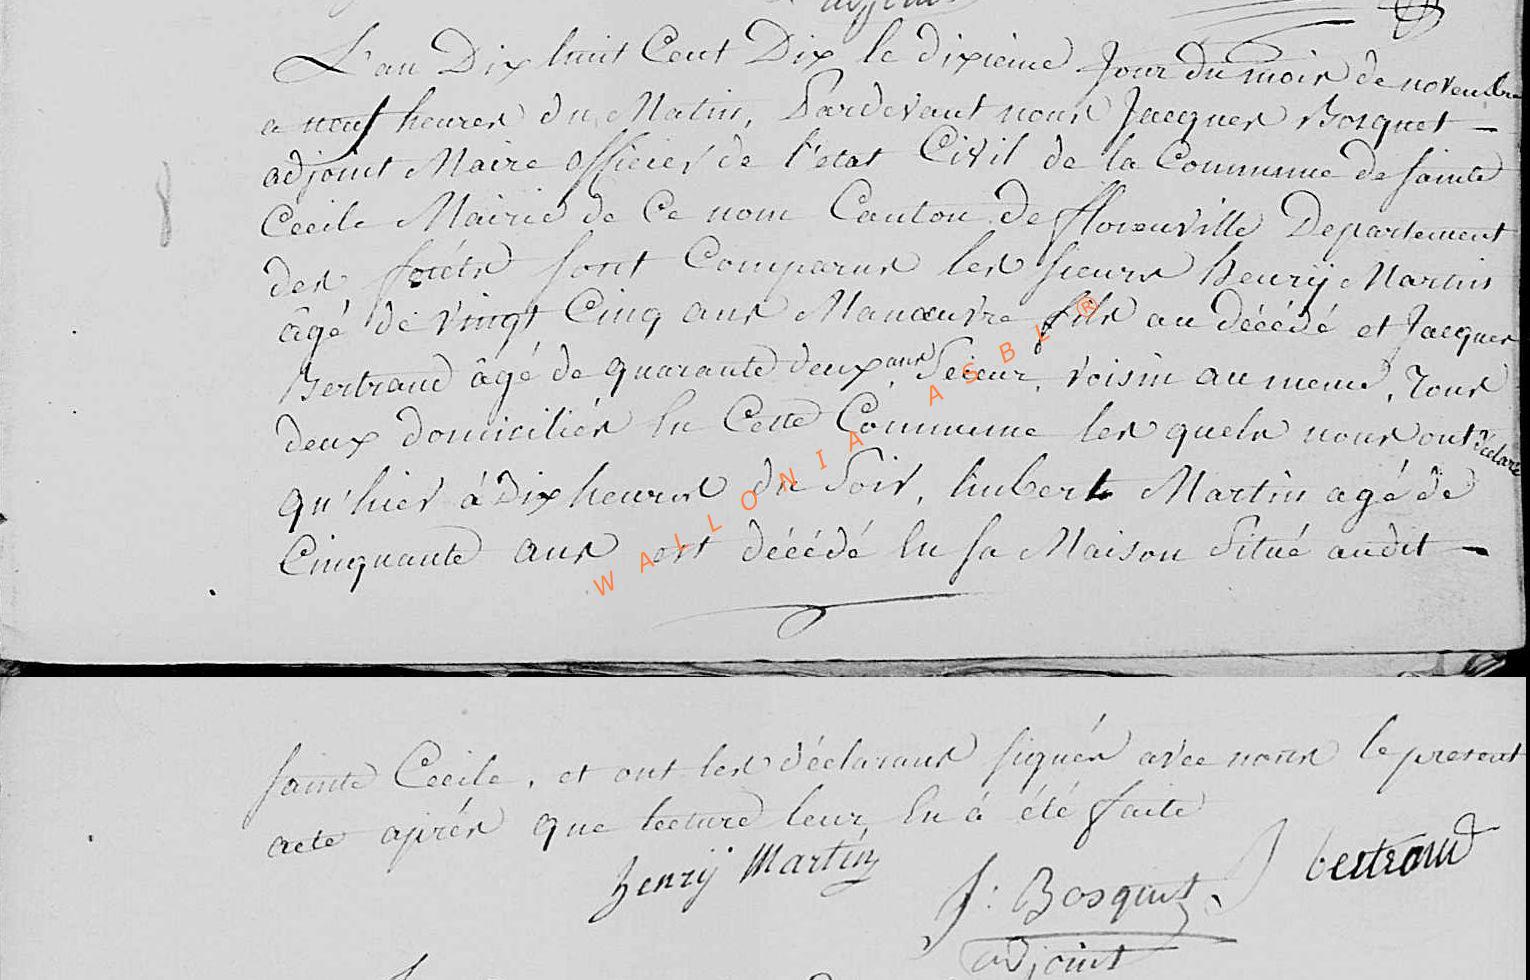 L'an Dix huit Cent Dix le dixieme Jour du mois de novembre
a neuf heures du Matin, Pardevant nous Jacques Bosquet —
adjoint Maire officier de l'etat Civil de la Commune de Sainte
Cecile Mairie de Ce nom Canton de florenville Departement
des foréts sont Comparus les sieurs henrÿ Martin
âgé de vingt Cinq ans Manœuvre fils au décédé et Jacques
Bertrand âgé de quarante deux ans Scieur, voisin au meme, Tous
deux domiciliés En Cette Commune les quels nous ont déclaré
qu'hier à Dix heures du Soir, hubert Martin agé de
Cinquante ans est décédé En sa Maison Situé audit —
WALLONIA ASBL ®
8
sainte Cecile, et ont les déclarans signés avec nous le present
acte aprés que lecture leur En à été faite
henrÿ Martin
J: Bosquet
J bertrand
adjoint